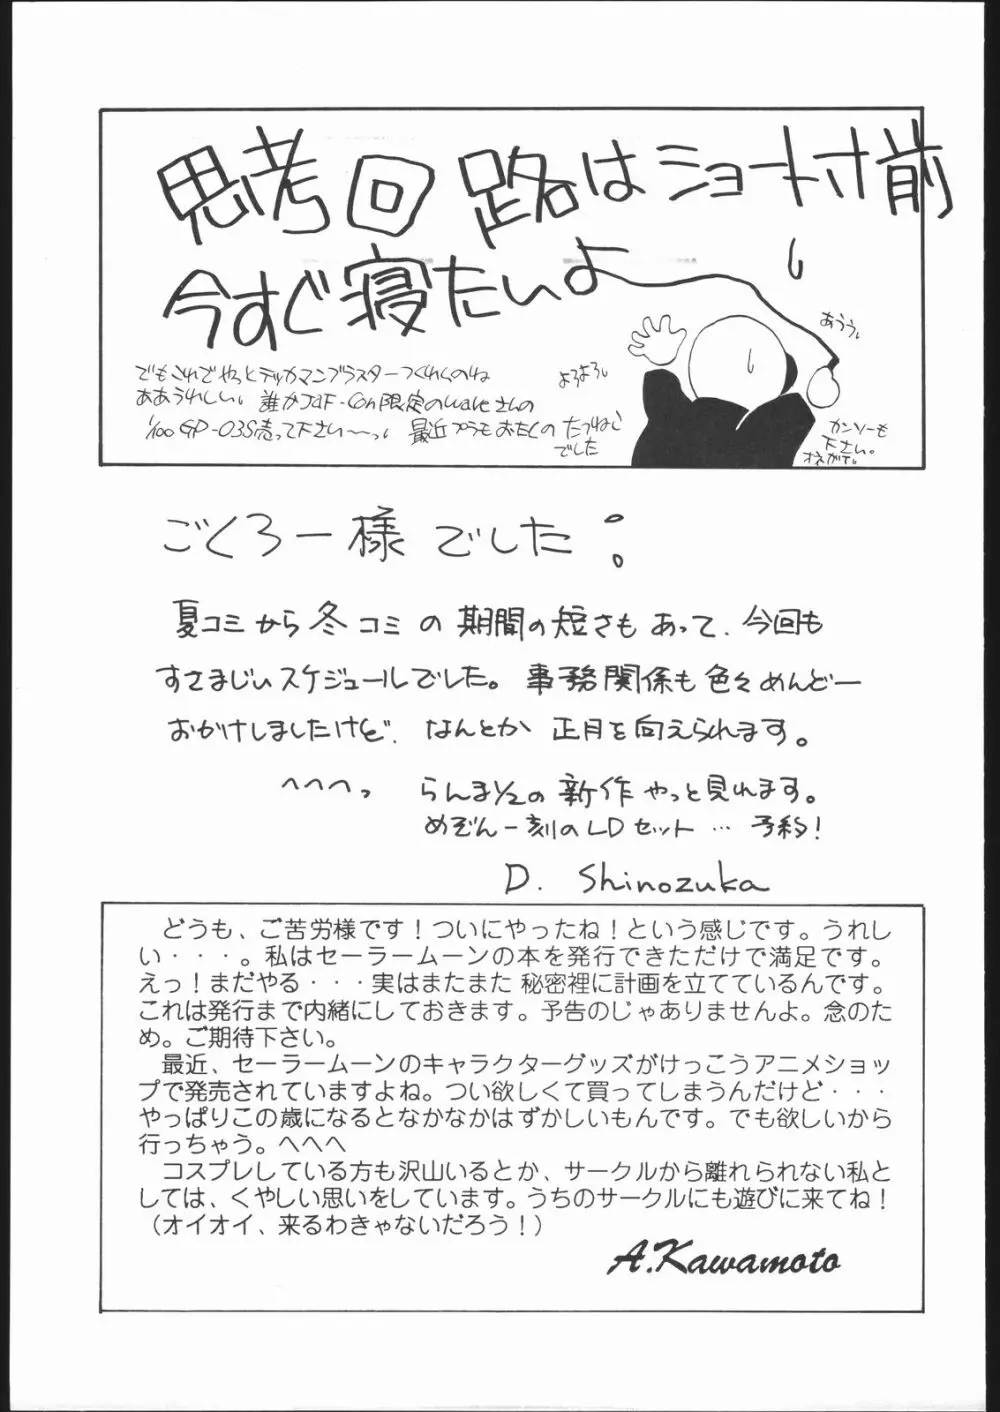 思考回路はショートす前
今すぐ寝たいよ
あうぅ。
よろよろ。
でもこれでやっとテッカマンブラスターつくれるのね
ああうれしい。誰かJAF-Con限定のwaveさんの
1/100 GP-03S売って下さい〜っ。最近プラモおたくの たつねじ
でした
カンソーも
下さい。
オネガイ。
ごくろー様でした。
夏コミから冬コミの期間の短さもあって、今回も
すさまじいスケジュールでした。事務関係も色々めんどー
おかけしましたけど、なんとか正月を向えられます。
へへへっ らんま1/2の新作やっと見れます。
めぞん一刻のLDセット…予約!
D. Shinozuka
どうも、ご苦労様です!ついにやったね!という感じです。うれし
い・・・。私はセーラームーンの本を発行できただけで満足です。
えっ!まだやる・・・実はまたまた 秘密裡に計画を立てているんです。
これは発行まで内緒にしておきます。予告のじゃありませんよ。念のた
め。ご期待下さい。
最近、セーラームーンのキャラクターグッズがけっこうアニメショッ
プで発売されていますよね。つい欲しくて買ってしまうんだけど・・・
やっぱりこの歳になるとなかなかはずかしいもんです。でも欲しいから
行っちゃう。へへへ
コスプレしている方も沢山いるとか、サークルから離れられない私と
しては、くやしい思いをしています。うちのサークルにも遊びに来てね!
(オイオイ、来るわきゃないだろう!)
A.Kawamoto